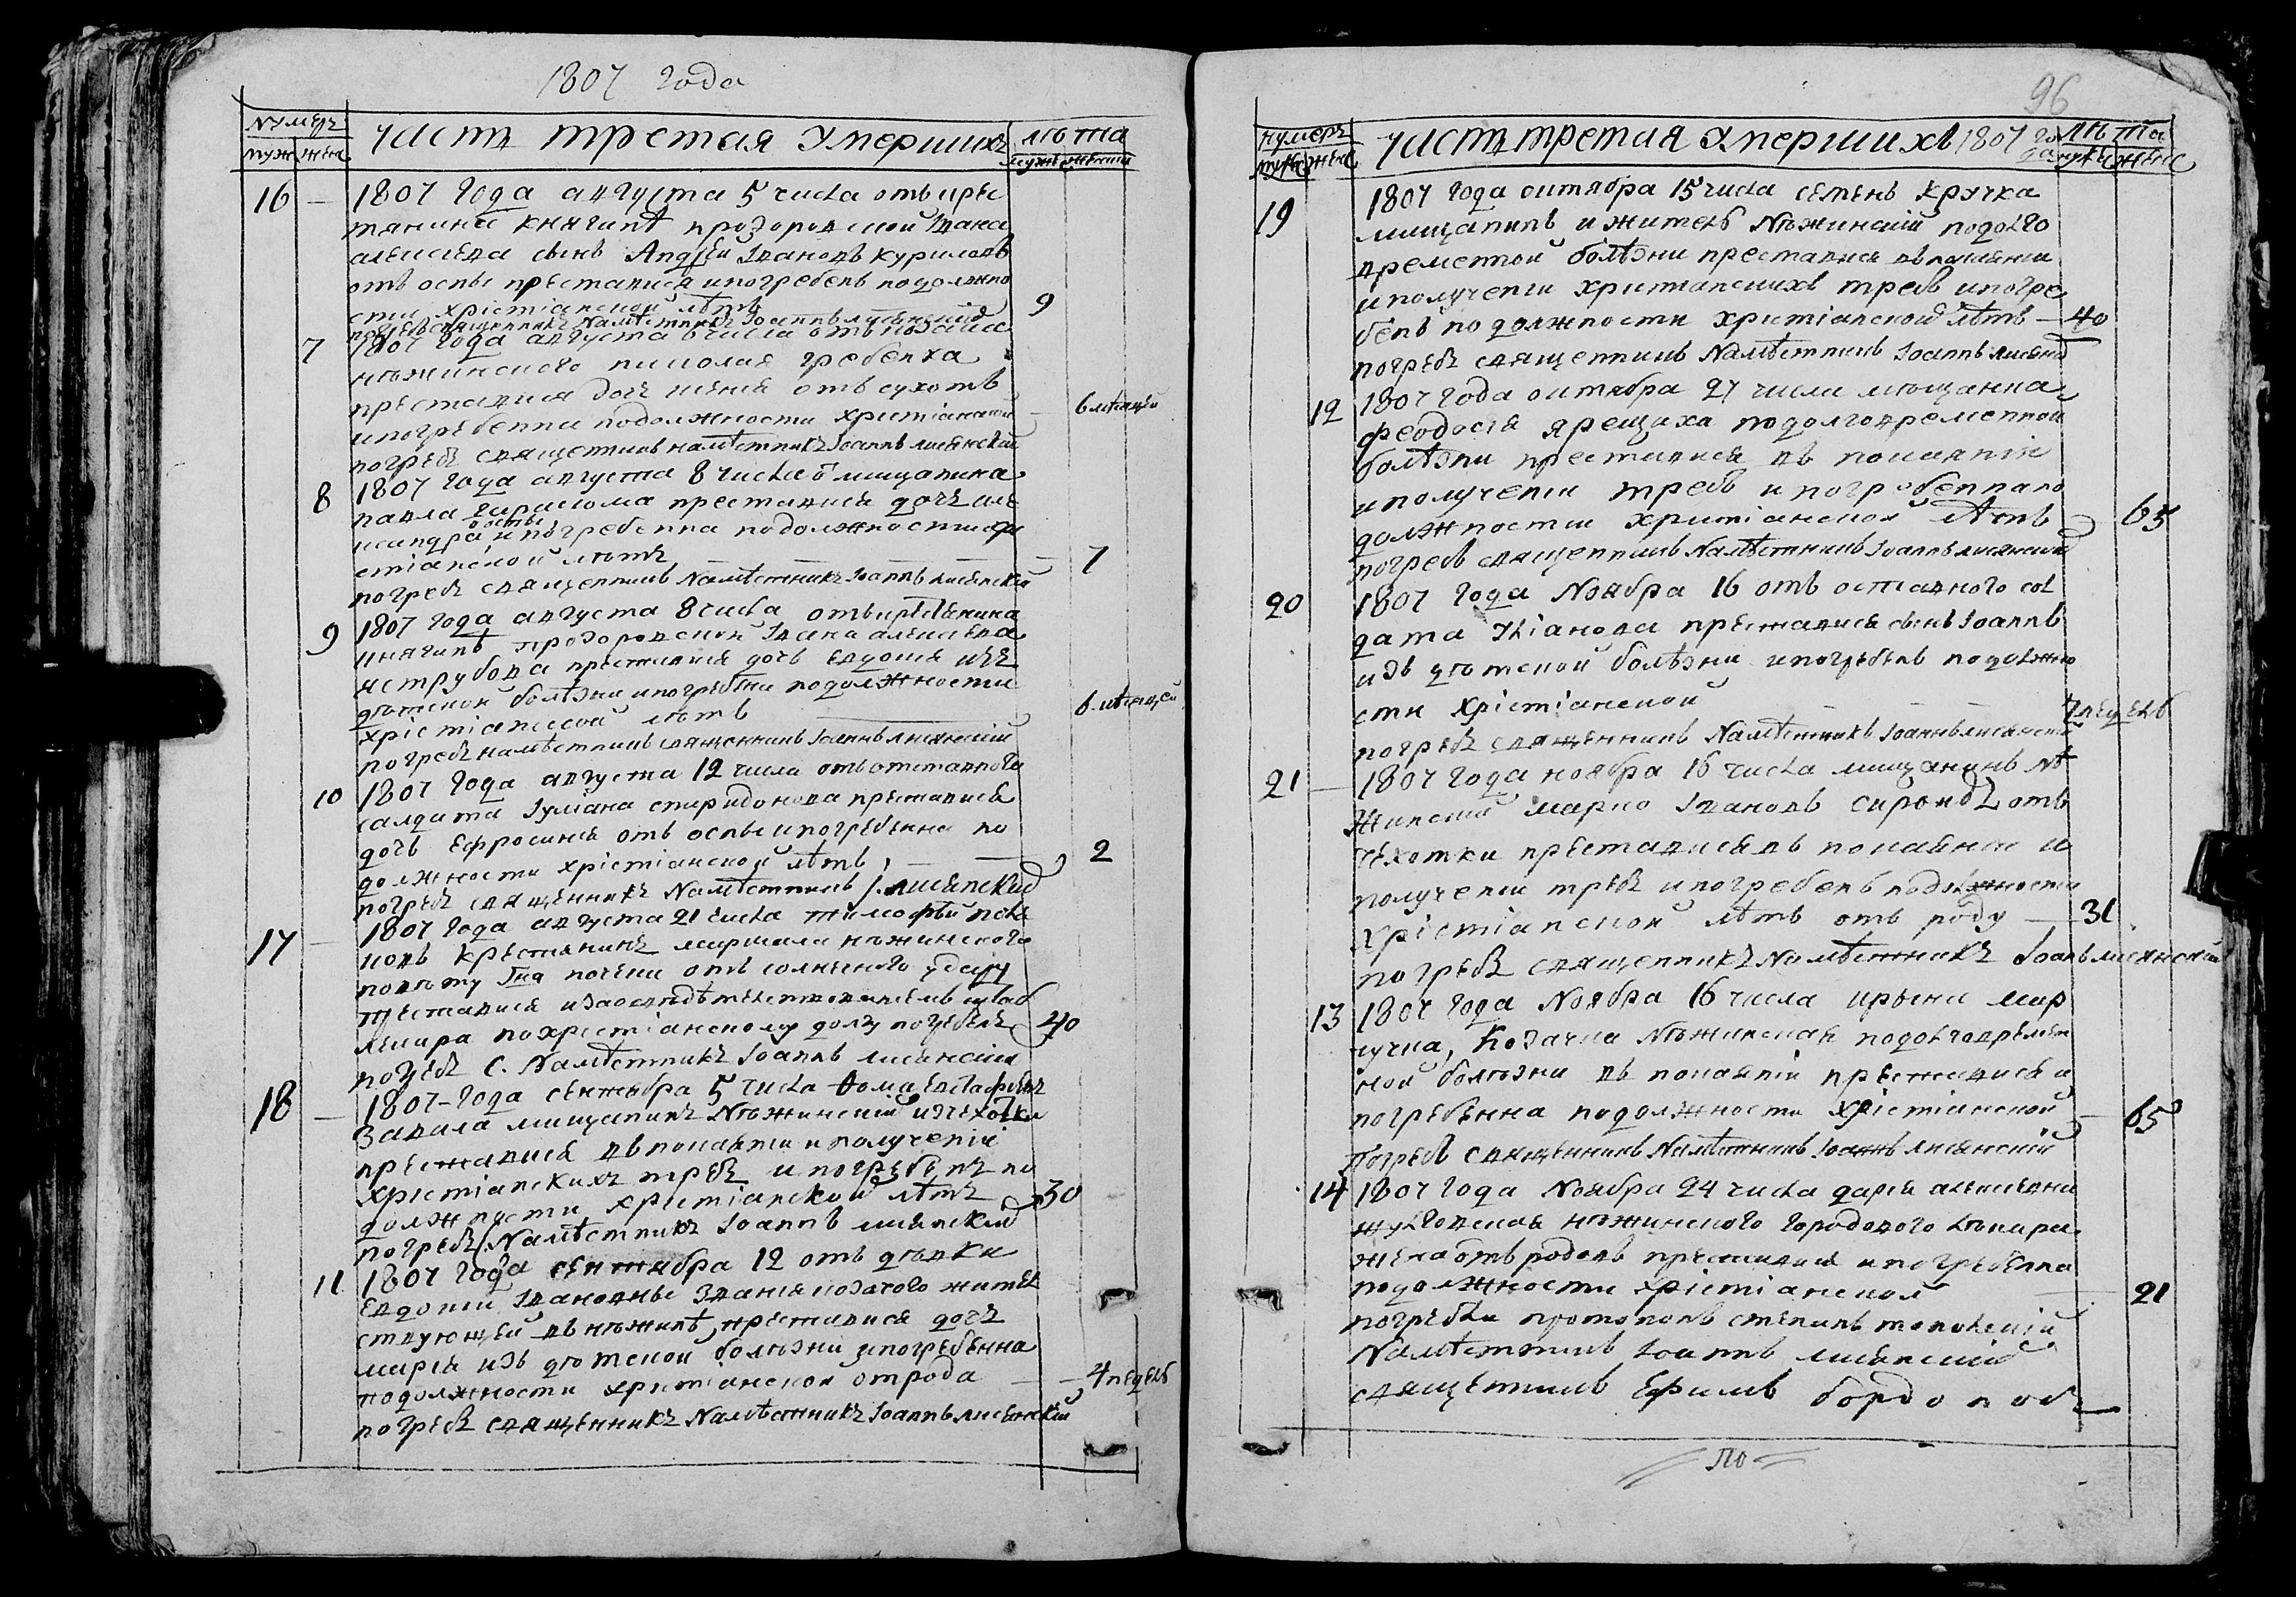 1807 года
нумеръ
муж жен
часть третая умершихъ
лѣта
мужеск женски
16 — 1807 года августа 5 числа отъ крес
тянина княгинѣ прозоровской Ивана
алексѣева сынъ Андрей Ивановъ куриловъ
отъ оспы преставися и погребенъ по должно
сти христіанской лѣтъ 9
погребъ священникъ Намѣстникъ Іоаннъ лисянскій
7 1807 года августа 6 числа отъ козака
нѣжинского николая гребенка
преставися дочь отъ сухотъ
и погребенна по должности христіанской — 6 мѣсяцей
погребъ священникъ намѣстникъ Іоаннъ лисянскій
8 1807 года августа 8 числа мищанина
павла герасюма преставися дочь але
ксандра отъ оспы и погребенна по должности хри
стіанской лѣтъ — 7
погребъ священникъ Намѣстникъ Іоаннъ лисянскій
9 1807 года августа 8 числа отъ крестянина
княгинѣ прозоровской Ивана алексѣева
преставися дочь Евдокія изъ
дѣтской болѣзни и погребена по должности
христіанской лѣтъ 6 мѣсяцей
погребъ намѣстникъ священникъ Іоаннъ лисянскій
10 1807 года августа 12 числа отъ отставного
салдата Іуліана спиридонова преставися
дочь Ефросинія отъ оспы и погребенна по
должности христіанской лѣтъ, — — 2
погребъ священникъ Намѣстникъ І. лисянскій
17 — 1807 года августа 21 числа тимофѣй
крестянинъ маршала нѣжинского
повѣту отъ солнечного удару
преставися
лекара по христіанскому долгу погребенъ 40
погребъ С. Намѣстникъ Іоаннъ лисянскій
18 — 1807 года сентября 5 числа Ѳома Евстафьевъ
Завила мищанинъ Нѣжинскій изъ чехотки
преставися въ покаяніи и полученіи
христіанскихъ требъ и погребенъ по
должности христіанской лѣтъ 30
погребъ С. Намѣстникъ Іоаннъ лисянскій
11 1807 года сентября 12 отъ дѣвки
Евдокіи Ивановны званія козачого жител
ствующей въ нѣжинѣ, преставися дочь
марія изъ дѣтской болѣзни и погребенна
по должности христіанской отрода — — 4 недель
погребъ священникъ Намѣстникъ Іоаннъ лисянскій
96
нумеръ
муж жен
часть третая умершихъ 1807 года
лѣта
мужск женск
19 1807 года октября 15 числа семенъ кручка
мищанинъ и житель Нѣжинскій по долго
временной болѣзни преставися въ покаяніи
и полученіи христианскихъ требъ и погре
бенъ по должности христіанской лѣтъ — 40
погребъ священникъ Намѣстникъ Іоаннъ лисянск
12 1807 года октября 27 числа мѣщанка
феодосія ярещиха по долговременной
болѣзни преставися въ покаяніи
и полученіи требъ и погребенна по
должности христіанской лѣтъ 65
погребъ священникъ Намѣстникъ Іоаннъ лисянскій
20 1807 года Ноября 16 отъ оставного сол
дата Уліанова преставися сынъ Іоаннъ
изъ дѣтской болѣзни и погребенъ по должно
сти христіанской недель
погребъ священникъ Намѣстникъ Іоаннъ лисянскій
21 — 1807 года ноября 16 числа мищанинъ Нѣ
жинскій марко Ивановъ отъ
чехотки преставися въ покаяніи и
полученіи требъ и погребенъ по должности
христіанской лѣтъ отъ роду — 31
погребъ священникъ Намѣстникъ Іоаннъ лисянскій
13 1807 года Ноября 16 числа ирына мар
чучка, козачка Нѣжинская по долговремен
ной болѣзни въ покаяніи преставися и
погребенна по должности христіанской — 65
погребъ священникъ Намѣстникъ Іоаннъ лисянскій
14 1807 года Ноября 24 числа дарія алексѣевна
нѣжинского городового лѣкара
жена отъ родовъ преставися и погребенна
по должности христіанской — 21
погребли протопопъ стефанъ
Намѣстникъ Іоаннъ лисянскій
священникъ Ефимъ бордоносъ
по